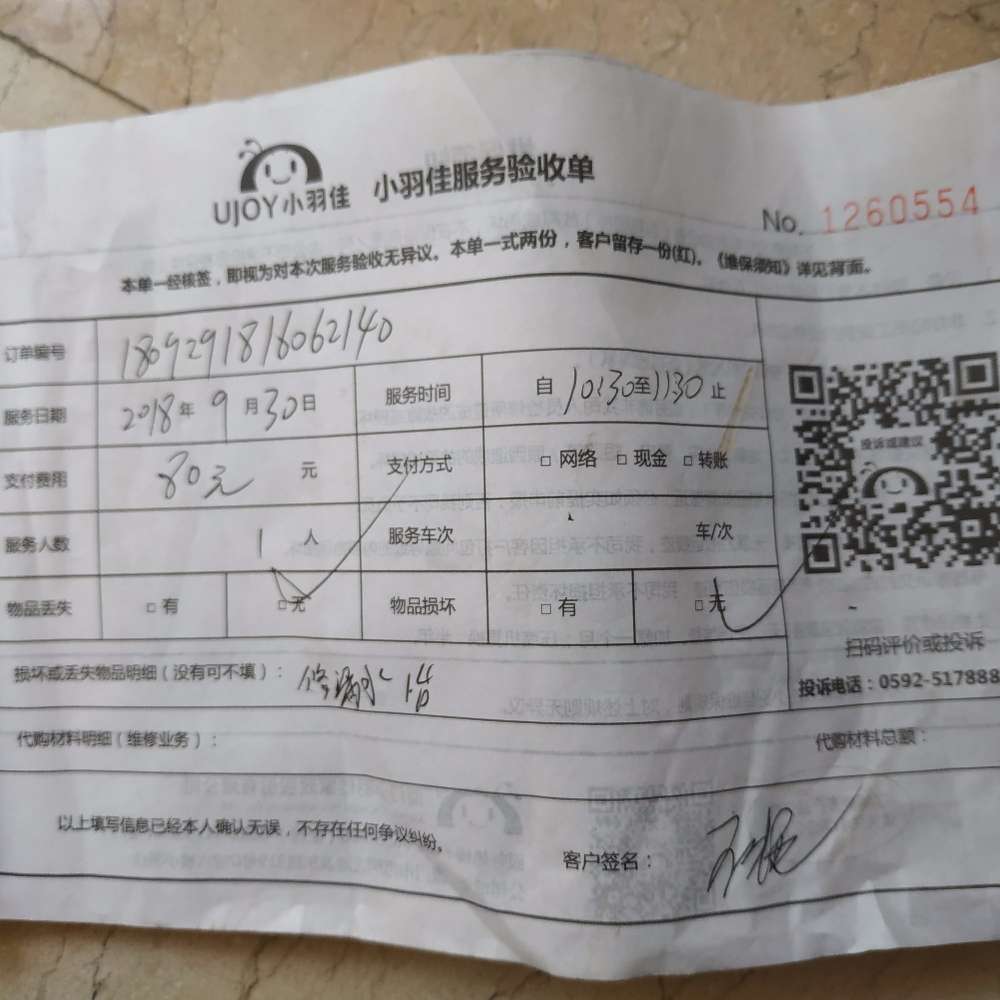 UJOY小羽佳 小羽佳服务验收单
No. 1260554
本单一经核签，即视为对本次服务验收无异议。本单一式两份，客户留存一份(红)。《维保须知》详见背面。
订单编号 1809291816062140
服务日期 2018年9月30日 服务时间 自10:30至11:30止
支付费用 80元 元 支付方式 □网络 □现金 □转账
服务人数 1人 服务车次 车/次
物品丢失 □有 □无 物品损坏 □有 □无
投诉或建议
扫码评价或投诉
投诉电话：0592-517888
损坏或丢失物品明细（没有可不填）： 修漏水
代购材料明细（维修业务）： 代购材料总额：
以上填写信息已经本人确认无误，不存在任何争议纠纷。
客户签名：